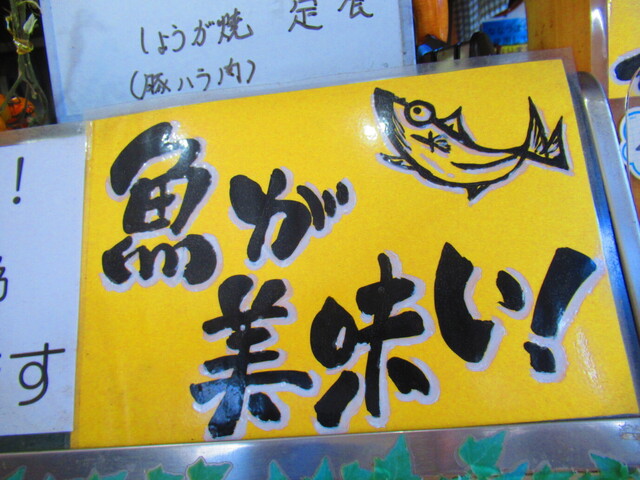 しょうが焼 定食
(豚バラ肉)
魚が
美味い!
!
す